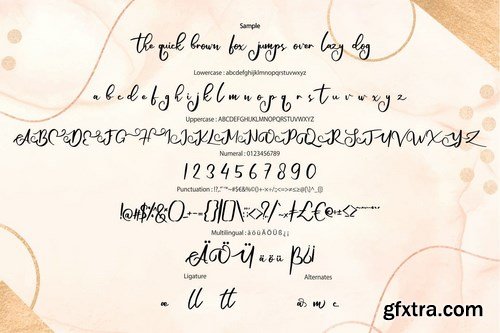 Sample
the quick brown fox jumps over lazy dog
Lowercase : abcdefghijklmnopqrstuvwxyz
a b c d e f g h i j k l m n o p q r s t u v w x y z
Uppercase : ABCDEFGHIJKLMNOPQRSTUVWXYZ
A B C D E F G H I J K L M N O P Q R S T U V W X Y Z
Numeral : 0123456789
1 2 3 4 5 6 7 8 9 0
Multilingual : ä ö ü Ä Ö Ü ß ¿ ¡
Ä Ö Ü ä ö ü ß ¿ ¡
Ligature Alternates
ll tt
gfxtra.com